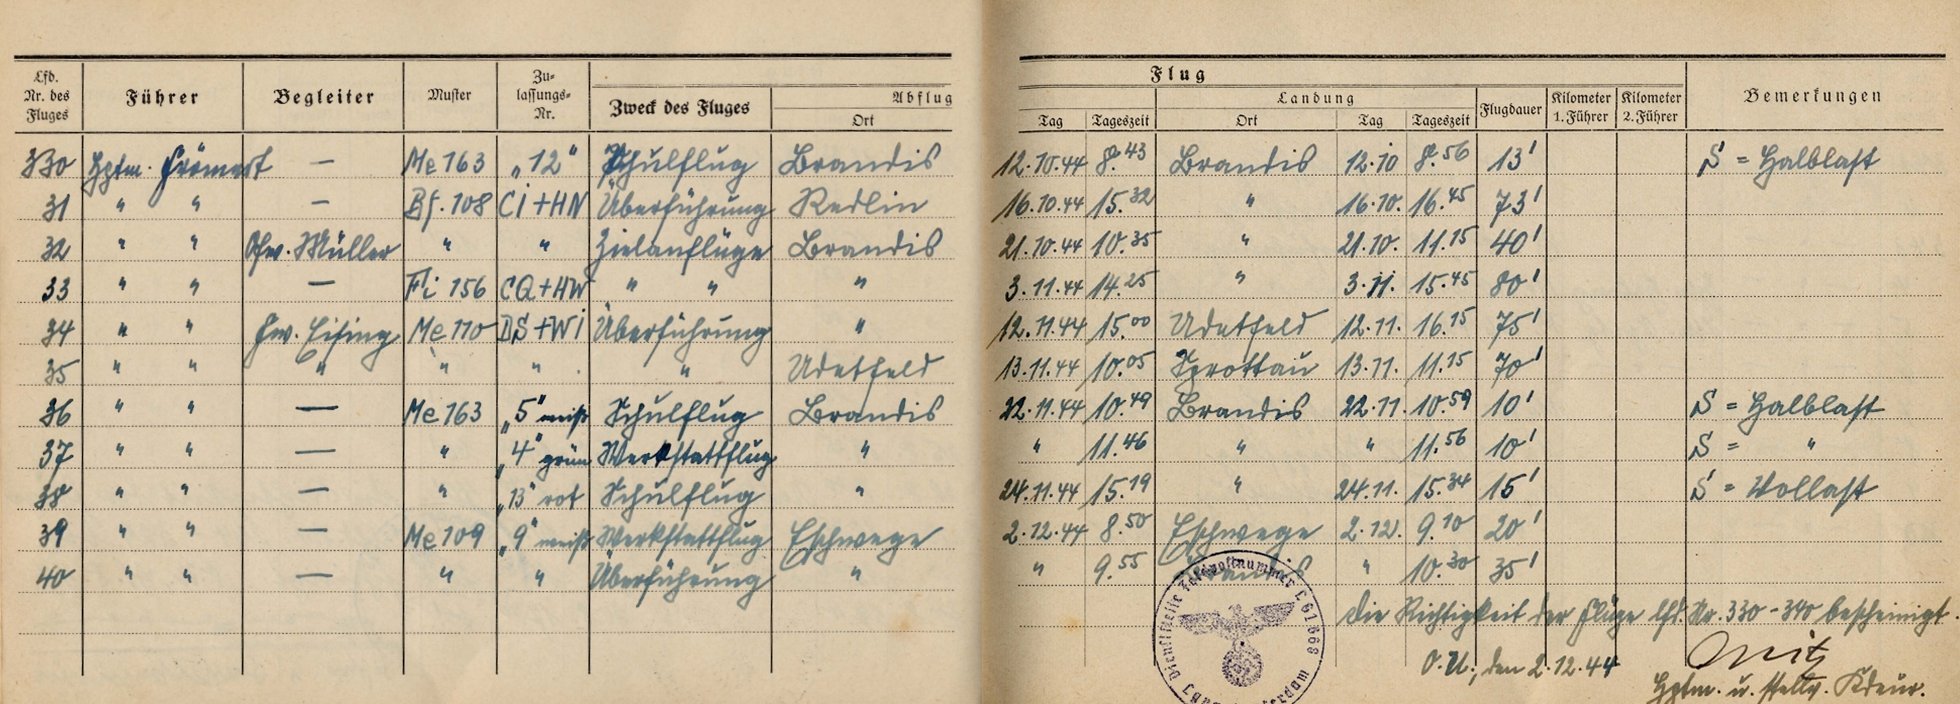 Flug
Lfd. Nr. des Fluges Führer Begleiter Muster Zu-lassungs-Nr. Zweck des Fluges Abflug Landung Flugdauer Kilometer 1. Führer Kilometer 2. Führer Bemerkungen
Ort Tag Tageszeit Ort Tag Tageszeit
330 Hptm. Frömert — Me 163 „12" Schulflug Brandis 12.10.44 8.43 Brandis 12.10 8.56 13' S = Halblast
31 " " — Bf. 108 CI+HN Überführung Redlin 16.10.44 15.32 " 16.10. 16.45 73'
32 " " Ofw. Müller " " Zielanflüge Brandis 21.10.44 10.35 " 21.10. 11.15 40'
33 " " — Fi 156 CQ+HW " " " 3.11.44 14.25 " 3.11. 15.45 80'
34 " " Fw. Eising Me 110 DS+WI Überführung " 12.11.44 15.00 Udetfeld 12.11. 16.15 75'
35 " " " " " " Udetfeld 13.11.44 10.05 Sprottau 13.11. 11.15 70'
36 " " — Me 163 „5" weiß Schulflug Brandis 22.11.44 10.49 Brandis 22.11. 10.59 10' S = Halblast
37 " " — " „4" grün Werkstattflug " " 11.46 " " 11.56 10' S = "
38 " " — " „13" rot Schulflug " 24.11.44 15.19 " 24.11. 15.34 15' S = Vollast
39 " " — Me 109 „9" weiß Werkstattflug Eschwege 2.12.44 8.50 Eschwege 2.12. 9.10 20'
40 " " — " " Überführung " " 9.55 Brandis " 10.30 35'
Die Richtigkeit der Flüge lfd. Nr. 330-340 bescheinigt.
O.U., den 2.12.44
Hptm. u. stellv. Kdeur.
Dienststelle Feldpostnummer L 61668